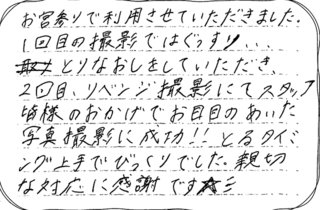 お宮参りで利用させていただきました。
1回目の撮影ではぐっすり、、、
とりなおしをしていただき、
2回目、リベンジ撮影にてスタッフ
皆様のおかげでお目目のあいた
写真撮影に成功!!とるタイミ
ング上手でびっくりでした。親切
な対応に感謝です☆彡